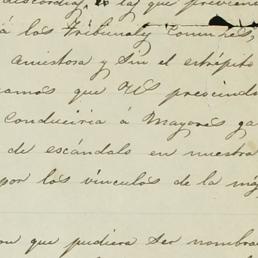 discordia, es las que previene
á los Tribunales comunes,
amistosa y sin el estrépito
amos que US prescinda
conduciria á mayores ga
de escándalo en nuestra
por los vínculos de la má
on que pudiera ser nombra